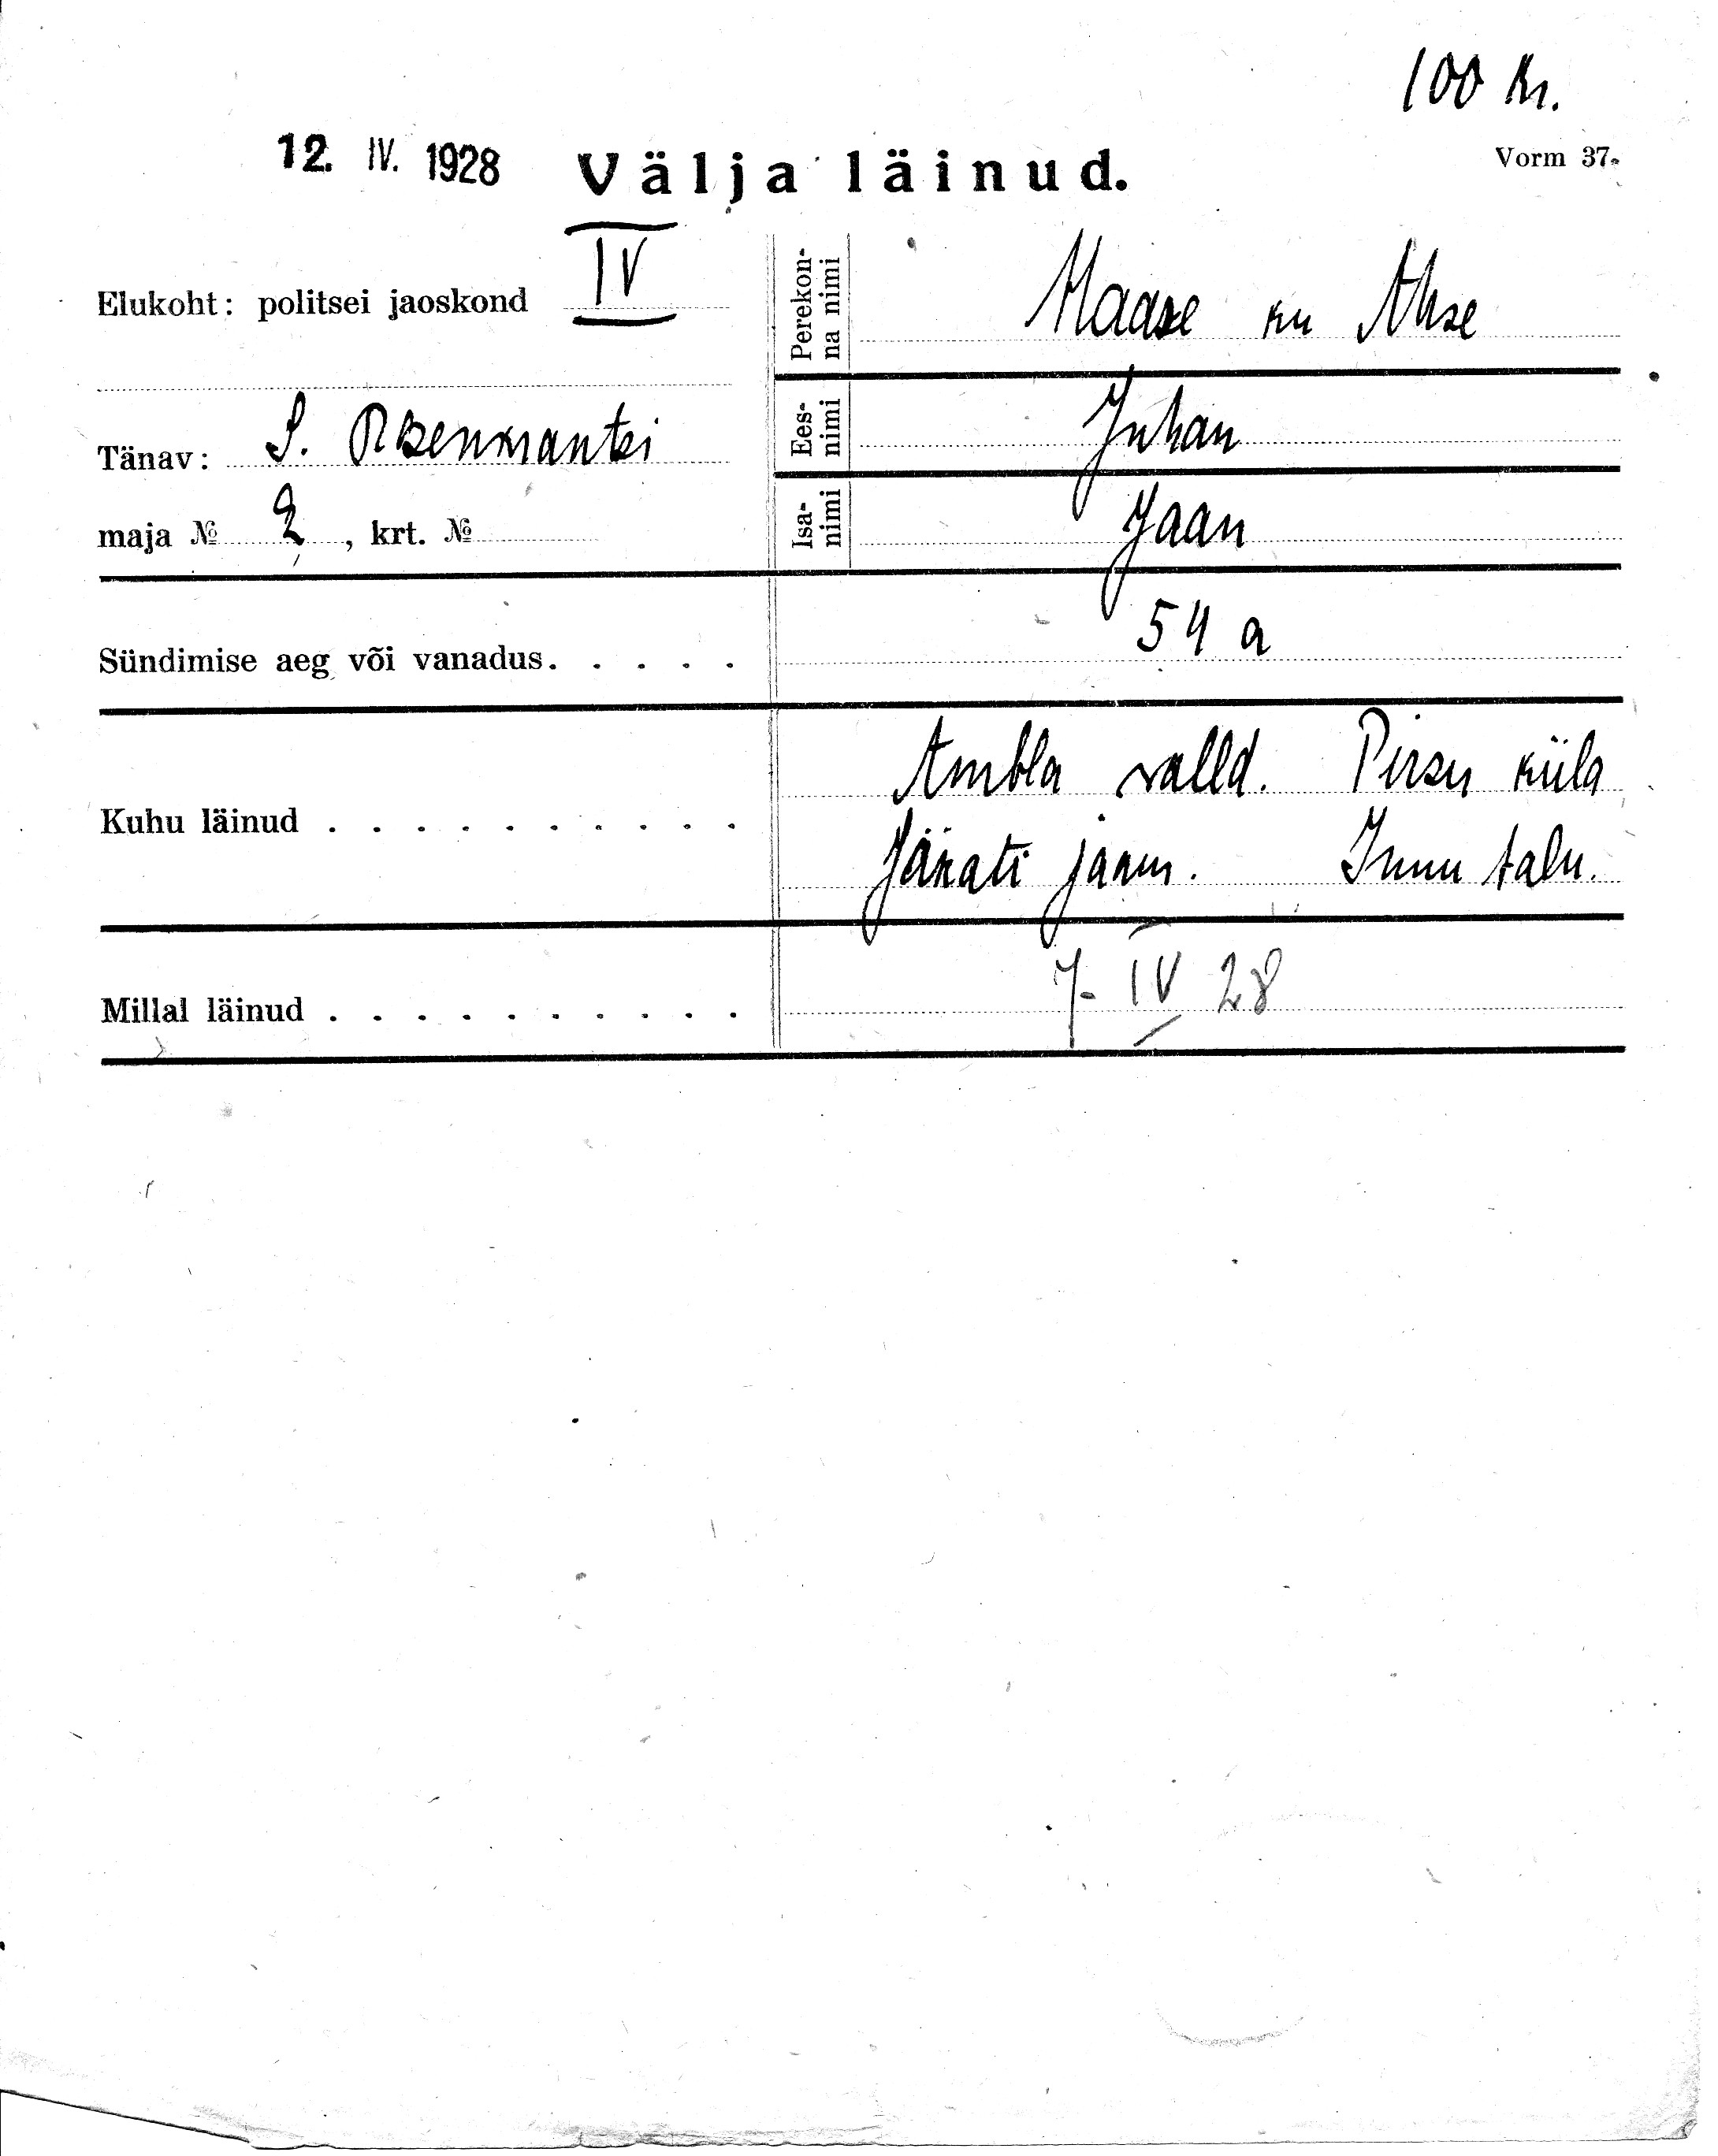 100 Kr.
12. IV. 1928 Välja läinud. Vorm 37.
Elukoht: politsei jaoskond IV
Perekonna nimi Maase ku Ahse
Tänav: S. Rosenkrantsi
Eesnimi Juhan
maja № 2, krt. №
Isanimi Jaan
Sündimise aeg või vanadus. . . . . 54 a
Kuhu läinud . . . . . . . . . . Ambla valld. Pirsu küla
Jänati jaam. talu.
Millal läinud . . . . . . . . . . 7. IV 28